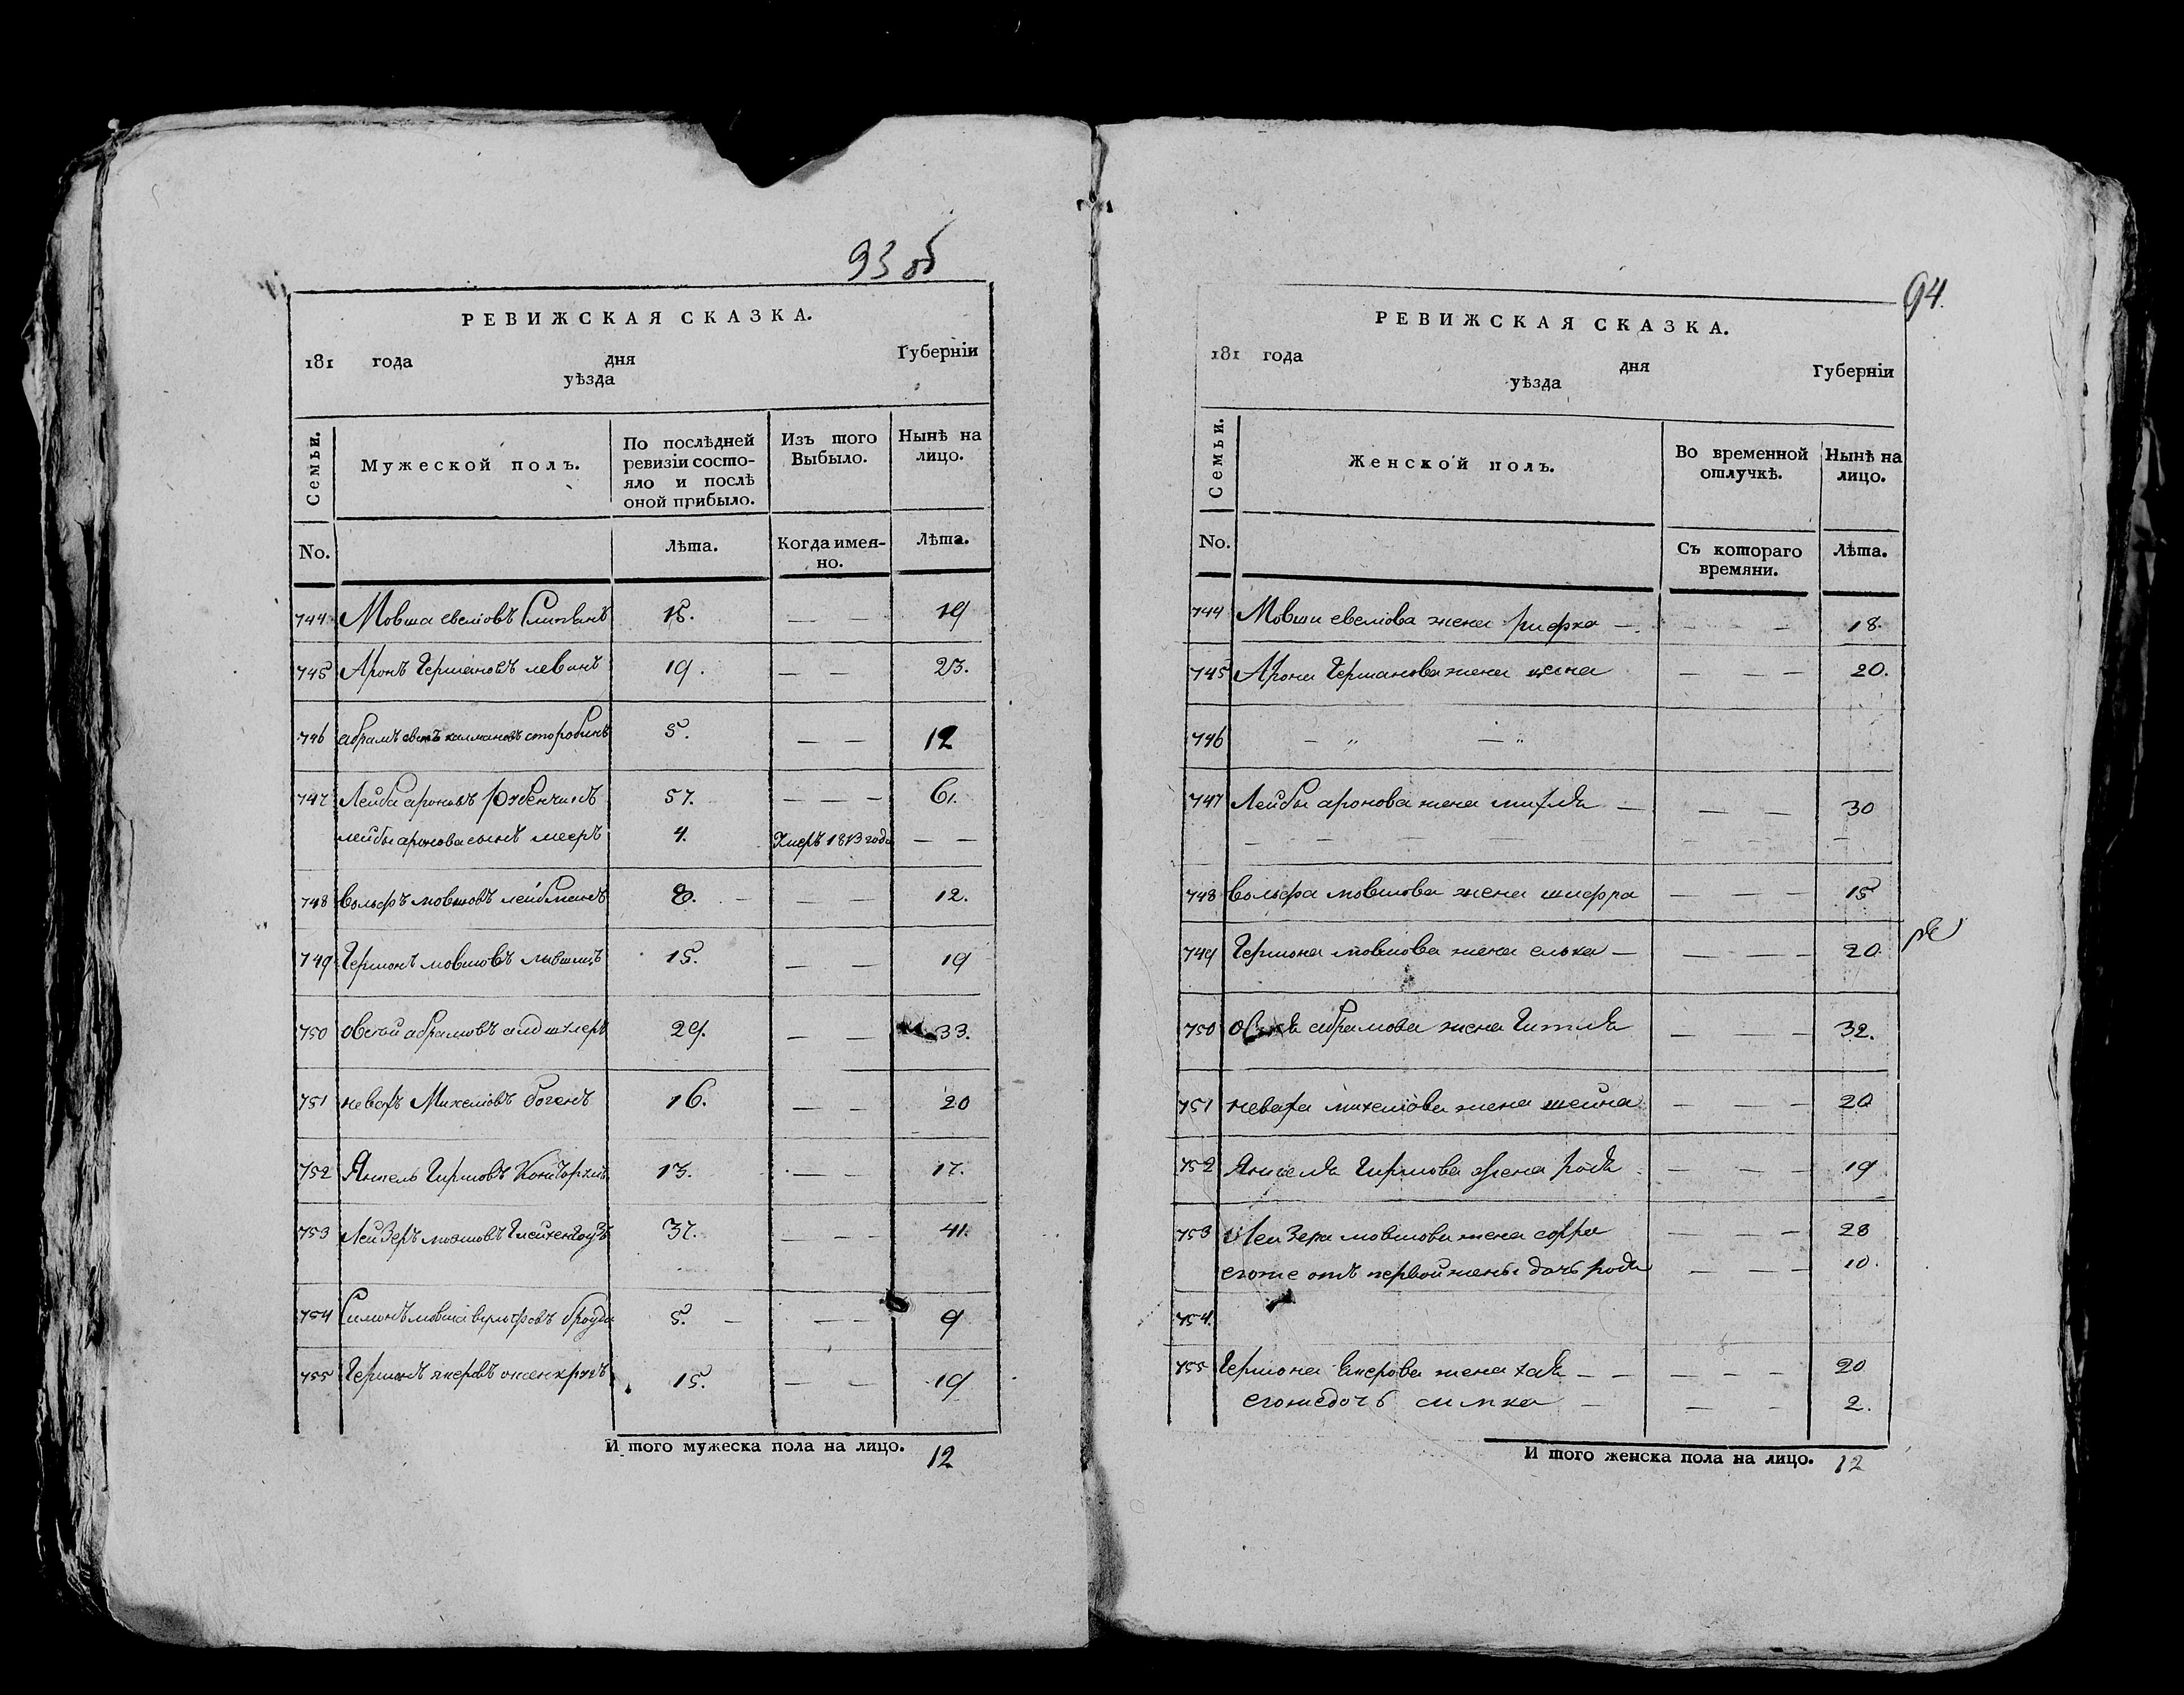 93 об
РЕВИЖСКАЯ СКАЗКА.
181 года дня Губерніи
уѣзда
Семьи.
Мужеской полъ.
По послѣдней ревизіи состо-
яло и послѣ
оной прибыло.
Изъ того
Выбыло.
Нынѣ на
лицо.
No.
Лѣта.
Когда имен-
но.
Лѣта.
744 Мовша евеліовъ 15. — — 19
745 Аронъ Гершановъ левинъ 19. — — 23.
746 абрамъ калмановъ сторобинъ 5. — — 12
747 Лейба ароновъ 57. — — — 61.
лейбы аронова сынъ мееръ 4. Умеръ 1813 года — —
748 вольфъ мовшовъ лейбманъ 8. — — — 12.
749 Гершонъ мовшовъ лившицъ 15. — — 19
750 овсѣй абрамовъ 29. — — 33.
751 невахъ Михеліовъ богенъ 16. — — 20
752 Янкель Гиршовъ 13. — — 17.
753 Лейзеръ мовшовъ 37. — — 41.
754 Симонъ мовша брауда 5. — — — 9
755 Гершонъ 15. — — 19
И того мужеска пола на лицо. 12
94.
РЕВИЖСКАЯ СКАЗКА.
181 года дня Губерніи
уѣзда
Семьи.
Женской полъ.
Во временной
отлучкѣ.
Нынѣ на
лицо.
No.
Съ котораго
времяни.
Лѣта.
744 Мовши евеліова жена рифка — — — — 18.
745 Арона Гершанова жена — — — 20.
746 — " — "
747 Лейбы аронова жена — — — 30
— — — — — — — —
748 вольфа мовшова жена шифра — — — 15
749 Гершона мовшова жена елька — — — — 20.
750 абрамова жена Гитля — — — 32.
751 неваха михеліова жена шейна — — — 20
752 Янкеля Гиршова жена родя — — — 19
753 Лейзера мовшова жена сорра — — — 28
егоже отъ первой жены дочь родя — — — 10.
754.
755 Гершона жена хая — — — — — 20
егоже дочь симка — — — 2.
И того женска пола на лицо. 12